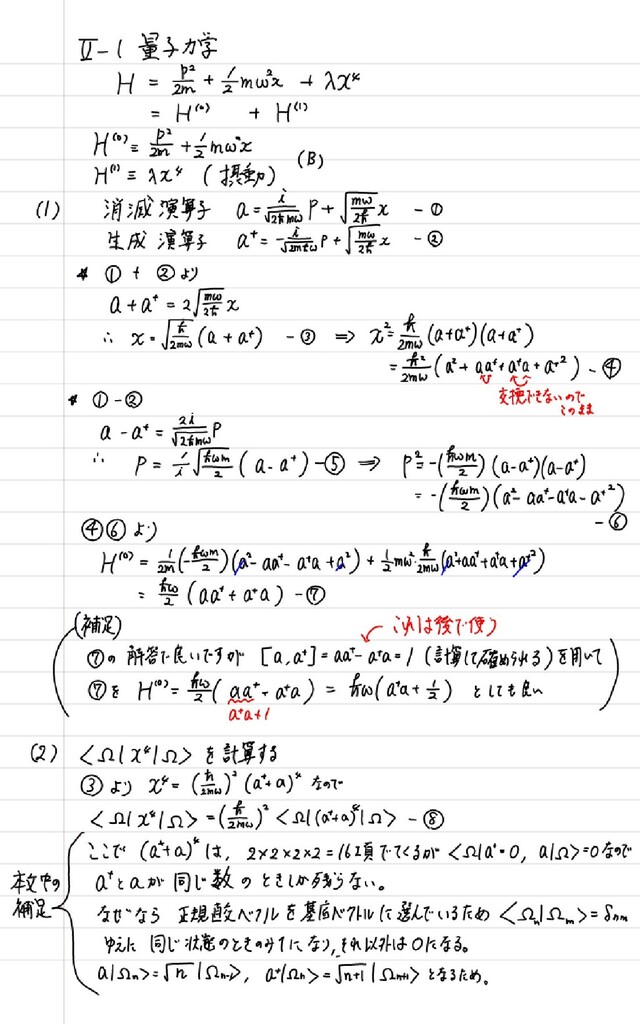 II-1 量子力学
H = p²/2m + 1/2 mω²x + λx⁴
= H⁽⁰⁾ + H⁽¹⁾
H⁽⁰⁾ ≡ p²/2m + 1/2 mω²x
H⁽¹⁾ ≡ λx⁴ (摂動) (B)
(1) 消滅演算子 a = i/√(2ℏmω) p + √(mω/2ℏ) x - ①
生成演算子 a⁺ = -i/√(2mℏω) p + √(mω/2ℏ) x - ②
* ① + ② より
a + a⁺ = 2√(mω/2ℏ) x
∴ x = √(ℏ/2mω) (a + a⁺) - ③ ⇒ x² = ℏ/2mω (a+a⁺)(a+a⁺)
= ℏ²/2mω (a² + aa⁺ + a⁺a + a⁺²) - ④
交換できないので
このまま
* ① - ②
a - a⁺ = 2i/√(2ℏmω) p
∴ P = 1/i √(ℏωm/2) (a - a⁺) - ⑤ ⇒ p² = -(ℏωm/2) (a-a⁺)(a-a⁺)
= -(ℏωm/2)(a² - aa⁺ - a⁺a - a⁺²)
- ⑥
④⑥ より
H⁽⁰⁾ = 1/2m (-ℏωm/2)(a² - aa⁺ - a⁺a + a²) + 1/2 mω² · ℏ/2mω (a² + aa⁺ + a⁺a + a⁺²)
= ℏω/2 (aa⁺ + a⁺a) - ⑦
(補足) これは後で使う
⑦の解答で良いですが [a, a⁺] = aa⁺ - a⁺a = 1 (計算して確められる) を用いて
⑦を H⁽⁰⁾ = ℏω/2 (aa⁺ + a⁺a) = ℏω(a⁺a + 1/2) としても良い
a⁺a+1
(2) ⟨Ω|x⁴|Ω⟩ を計算する
③より x⁴ = (ℏ/2mω)² (a⁺+a)⁴ なので
⟨Ω|x⁴|Ω⟩ = (ℏ/2mω)² ⟨Ω|(a⁺+a)⁴|Ω⟩ - ⑧
ここで (a⁺+a)⁴ は, 2×2×2×2 = 16項でてくるが ⟨Ω|a⁺ = 0, a|Ω⟩ = 0 なので
a⁺とaが同じ数のときしか残らない。
本文中の
補足
なぜなら 正規直交ベクトルを基底ベクトルに選んでいるため ⟨Ωn|Ωm⟩ = δnm
ゆえに 同じ状態のときのみ1になり, それ以外は0になる。
a|Ωn⟩ = √n |Ωn-1⟩, a⁺|Ωn⟩ = √n+1 |Ωn+1⟩ となるため。